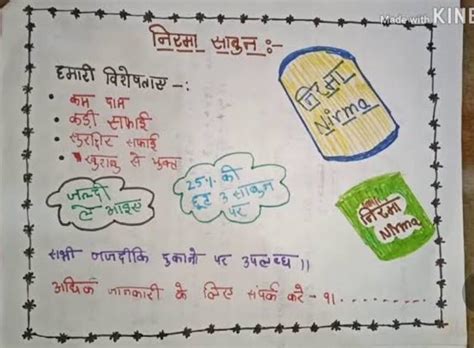 Made with KINE
निरमा साबुन :-
हमारी विशेषताए -:
• कम दाम
• कडी सफाई
• सुरक्षित सफाई
• खुशबु से युक्त
निरमा
Nirma
जल्दी
ले आइए
25% की
छूट 3 साबुन
पर
निरमा
Nirma
सभी नजदीकि दुकानो पर उपलब्ध ।।
अधिक जानकारी के लिए संपर्क करे - 91.........